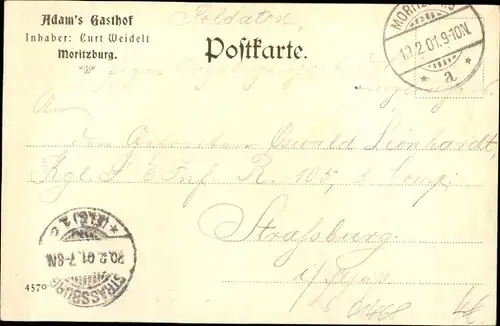 Adam's Gasthof
Inhaber: Curt Weidelt
Moritzburg.
Postkarte.
MORITZBURG
19.2.01.9-10N.
* a *
An
den Gefreiten Oswald Lionhardt
Kgl. S. 6 Inf. R. 105, 3 Comp.
Strassburg
i/Elsass
STRASSBURG
20.2.01.7-8N.
* (ELS.) 2 c
4570